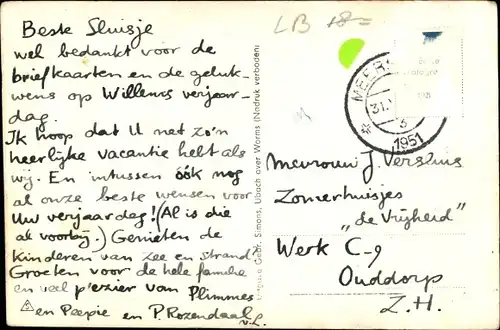 Beste Sluisje
wel bedankt voor de
briefkaarten en de geluk-
wens op Willems verjaar-
dag.
Ik hoop dat U net zo'n
heerlijke vacantie hebt als
wij. En intussen óók nog
al onze beste wensen voor
Uw verjaardag! (Al is die
al voorbij.) Genieten de
kinderen van zee en strand
Groeten voor de hele familie
en veel plezier van Plimmes
en Peepie en P. Rozendaal
v.L.
Gebr. Simons, Ubach over Worms (Nadruk verboden)
LB 18=
MEERS
31
1951
Mevrouw J. Versluis
Zomerhuisjes
„de Vrijheid"
Werk C-9
Ouddorp
Z.H.